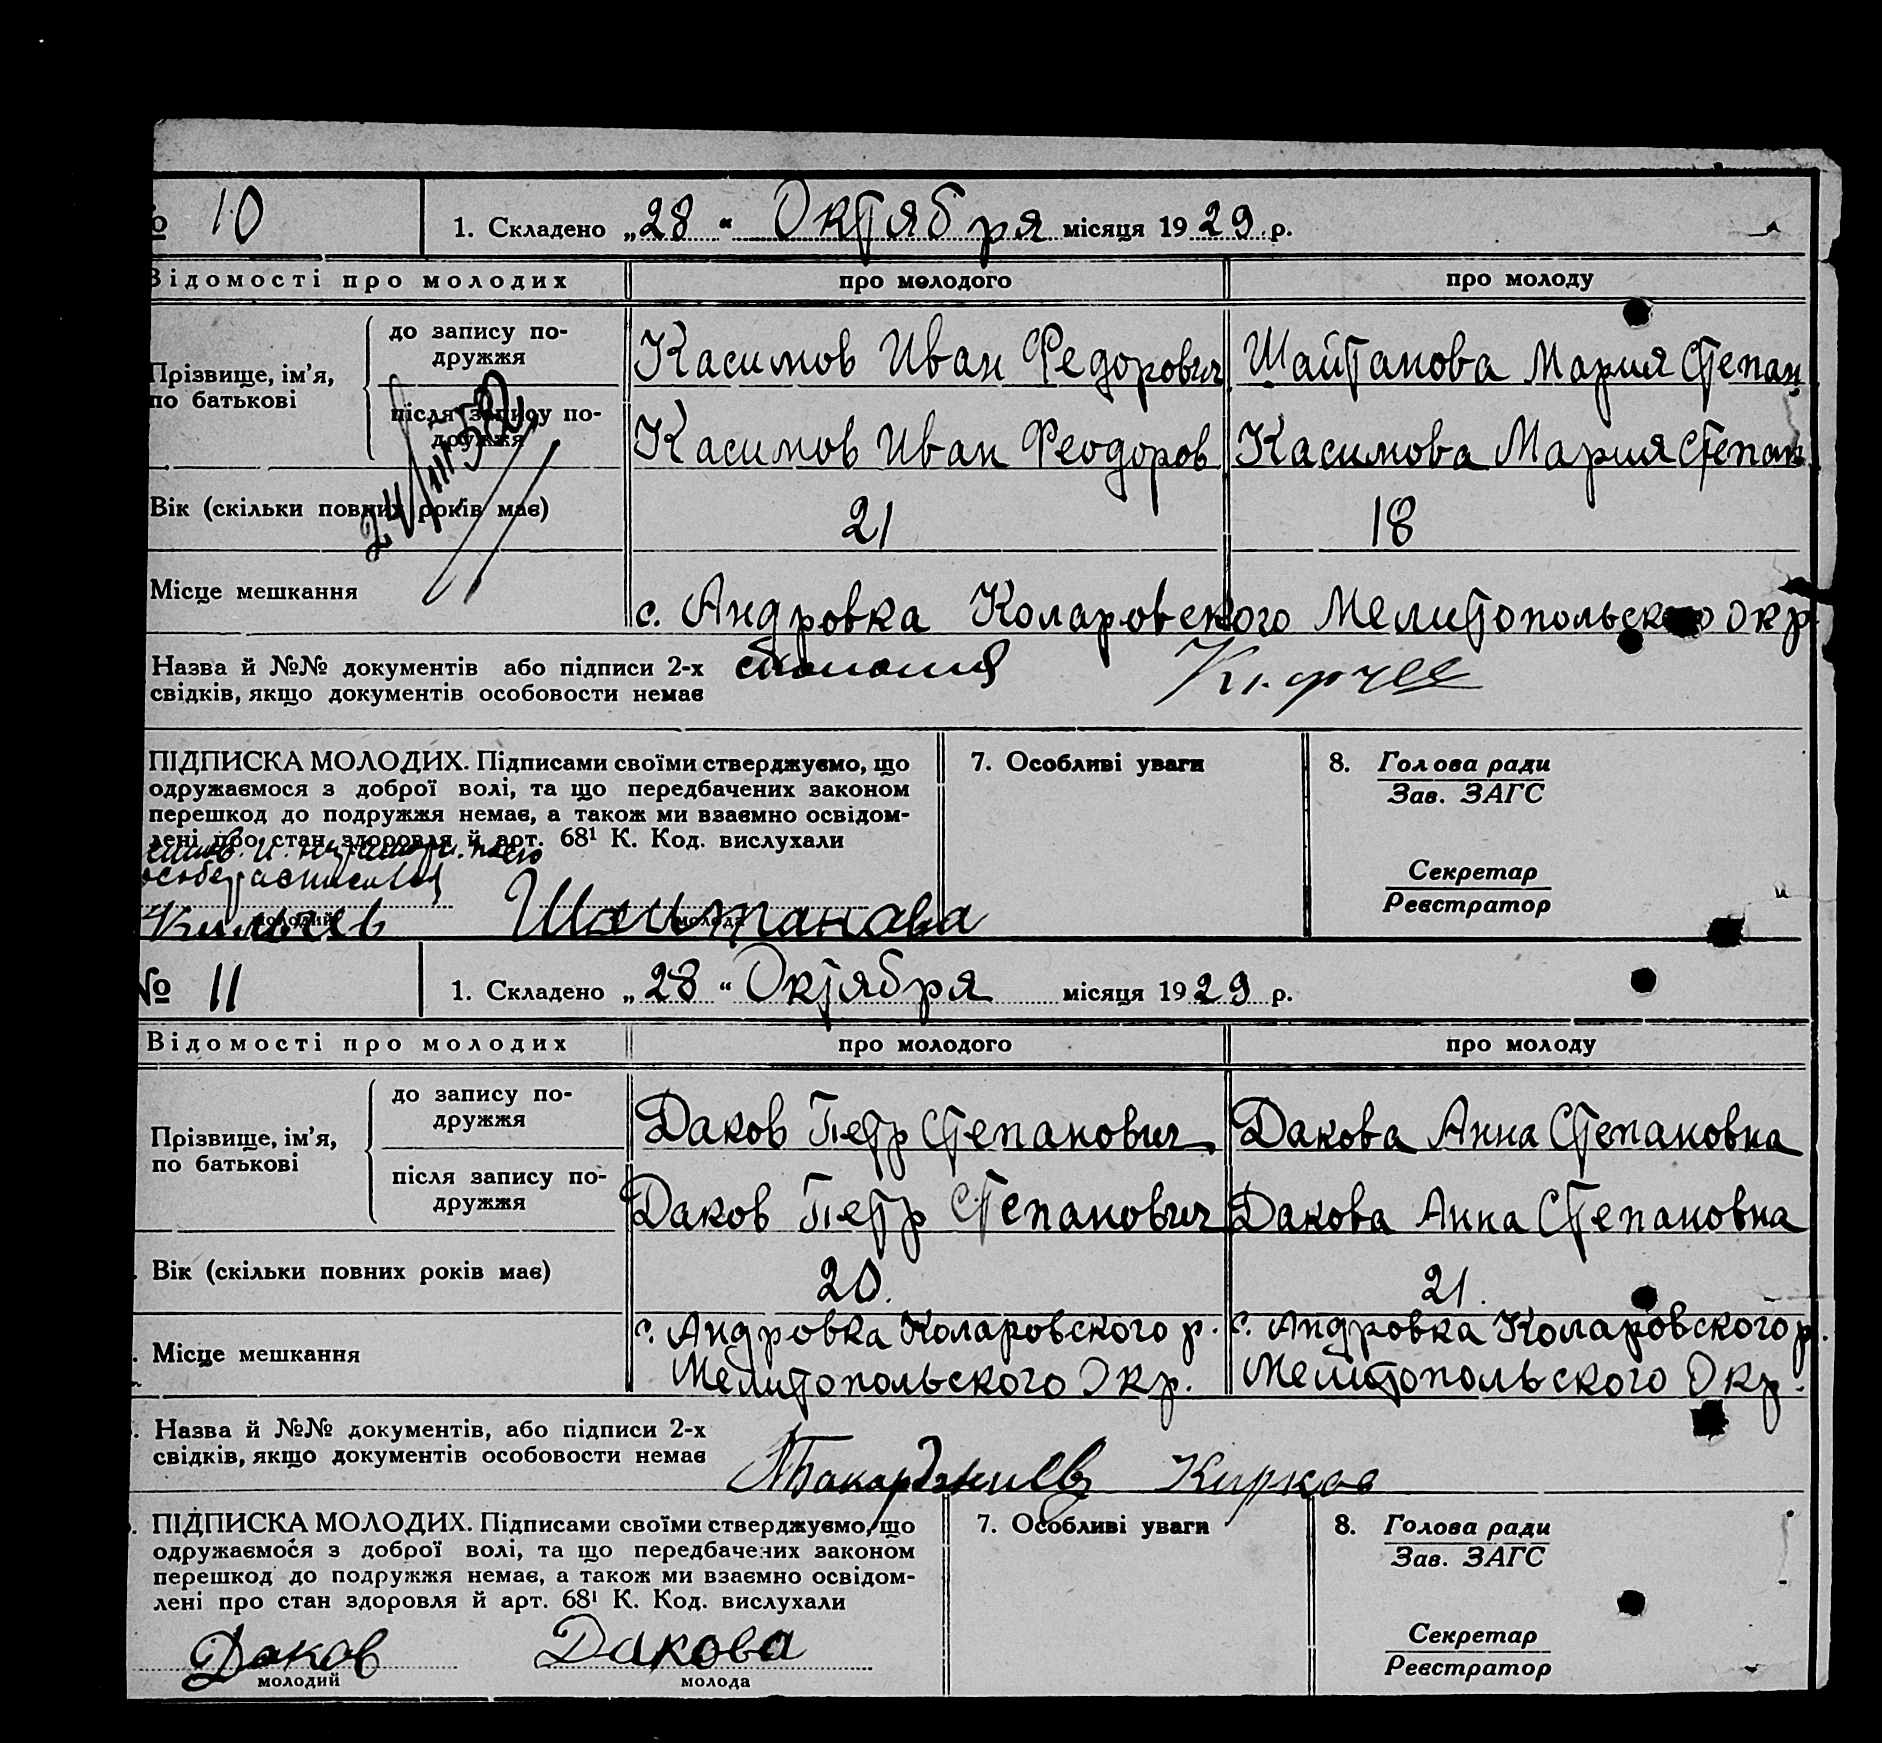 № 10 1. Складено „28“ Октября місяця 1929 р.
Відомості про молодих про молодого про молоду
до запису по-
дружжя
Прізвище, ім'я,
по батькові
Касимов Иван Федорович Шайтанова Мария Степан
після запису по-
дружжя
Касимов Иван Феодоров Касимова Мария Степан
Вік (скільки повних років має) 21 18
Місце мешкання
с. Андровка Коларовского Мелитопольского окр.
Назва й №№ документів або підписи 2-х
свідків, якщо документів особовости немає
ПІДПИСКА МОЛОДИХ. Підписами своїми стверджуємо, що
одружаємося з доброї волі, та що передбачених законом
перешкод до подружжя немає, а також ми взаємно освідом-
лені про стан здоровля й арт. 68¹ К. Код. вислухали
7. Особливі уваги
8. Голова ради
Зав. ЗАГС
Секретар
Реєстратор
молодий молода
Шайтанова
№ 11 1. Складено „28“ Октября місяця 1929 р.
Відомості про молодих про молодого про молоду
до запису по-
дружжя
Прізвище, ім'я,
по батькові
Даков Петр Степанович Дакова Анна Степановна
після запису по-
дружжя
Даков Петр Степанович Дакова Анна Степановна
Вік (скільки повних років має) 20. 21.
Місце мешкання
с. Андровка Коларовского р. с. Андровка Коларовского р.
Мелитопольского Окр. Мелитопольского Окр.
Назва й №№ документів, або підписи 2-х
свідків, якщо документів особовости немає
Кирков
ПІДПИСКА МОЛОДИХ. Підписами своїми стверджуємо, що
одружаємося з доброї волі, та що передбачених законом
перешкод до подружжя немає, а також ми взаємно освідом-
лені про стан здоровля й арт. 68¹ К. Код. вислухали
7. Особливі уваги
8. Голова ради
Зав. ЗАГС
Секретар
Реєстратор
Даков Дакова
молодий молода